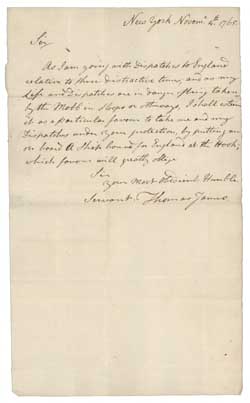 New York Novemr 4th 1765
Sir
As I am going with Dispatches to England
relative to these distractive times, and as my
Life and Dispatches are in danger of being taken
by the Mobb in Sloops or otherways, I shall esteem
it as a particular favour to take me and my
Dispatches under your protection, by putting me
on board A Ship bound for England at the Hook;
which favour will greatly oblige
Sir
Your Most Obedient Humble
Servant. Thomas James